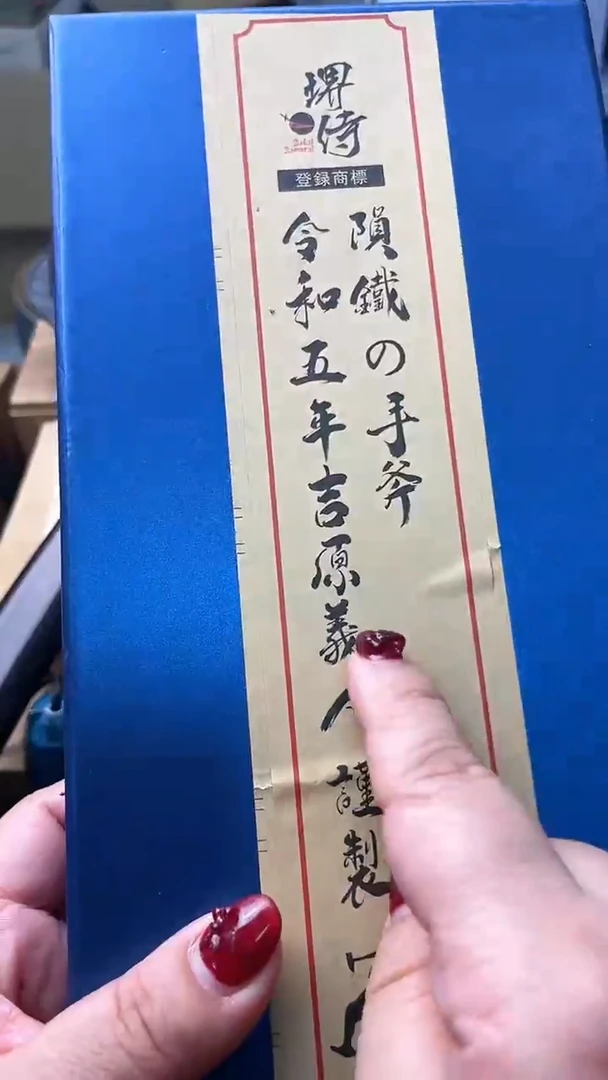 堺侍
Sakai Samurai
登録商標
隕鐵の手斧
令和五年吉原義人謹製